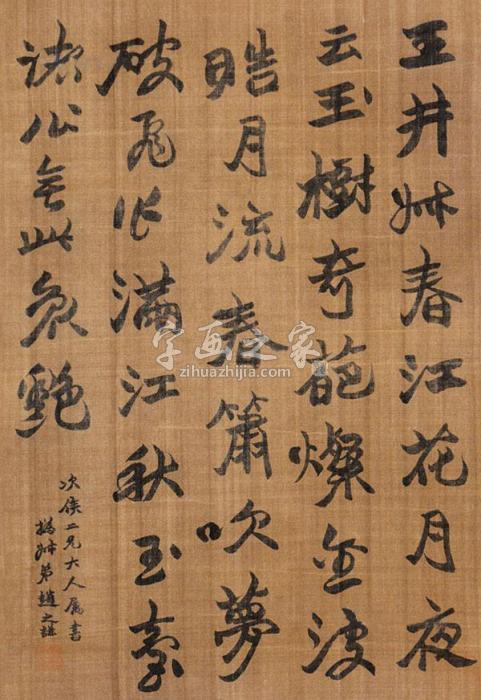 王井叔春江花月夜
云玉樹奇葩燦金波
皓月流春簫吹夢
破飛作滿江秋玉臺
諸公無此哀艷
次侯二兄大人屬書
撝叔弟趙之謙
字画之家
zihuazhijia.com